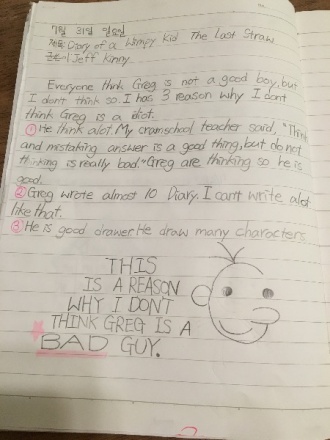 7월 31일 일요일
제목: Diary of a Wimpy Kid The Last Straw
글쓴이 Jeff Kinny
Everyone think Greg is not a good boy, but
I don't think so. I has 3 reason why I dont
think Greg is a diot.
① He think alot. My cramschool teacher said, "Think
and mistaking answer is a good thing, but do not
thinking is really bad." Greg are thinking so he is
good.
② Greg wrote almost 10 Diary. I can't write alot
like that.
③ He is good drawer He draw many characters
THIS
IS A REASON
WHY I DON'T
THINK GREG IS A
BAD GUY.